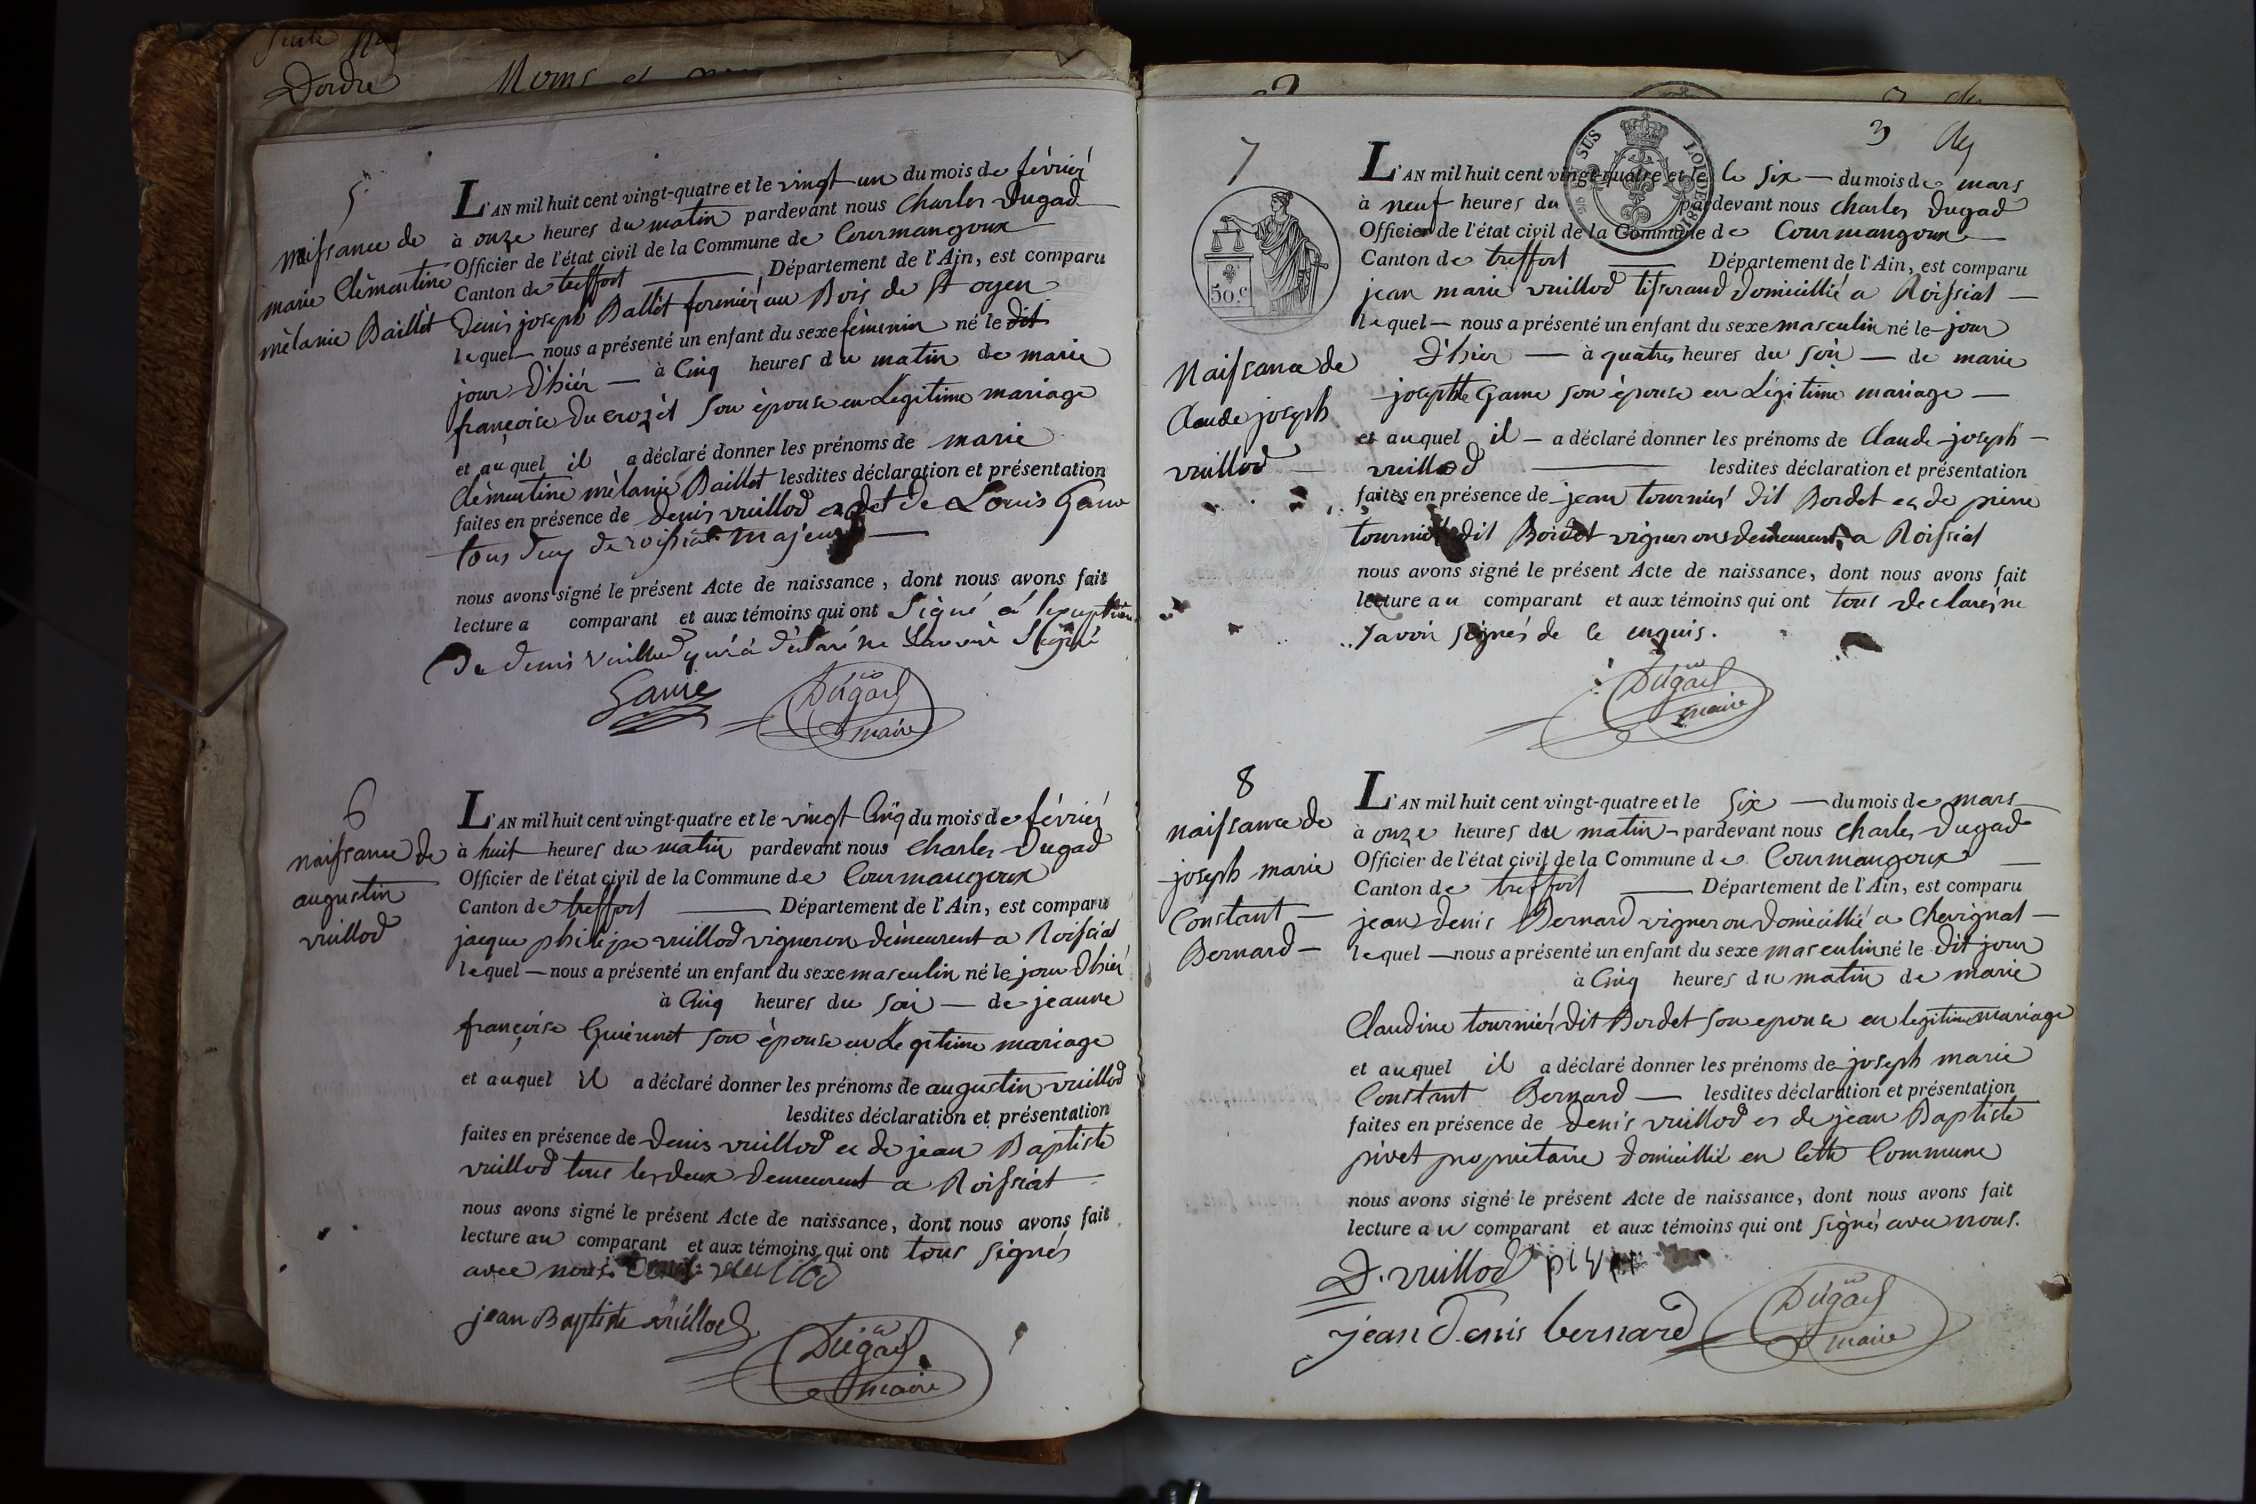 suite
Dordre
Noms et
5
naissance de
marie Clèmentine
mèlanie Baillèt
L'AN mil huit cent vingt-quatre et le vingt un du mois de février
à onze heures du matin pardevant nous Charles Dugad
Officier de l'état civil de la Commune de Courmangoux
Canton de treffort Département de l'Ain, est comparu
Denis joseph Ballèt fermiér au Bois de St oyen
lequel nous a présenté un enfant du sexe féminin né le dit
jour d'hiér à Cinq heures du matin de marie
françoise du crozèt son èpouse en Légitime mariage
et auquel il a déclaré donner les prénoms de marie
Clèmentine mèlanie Baillet lesdites déclaration et présentation
faites en présence de denis vuillod et de Louis Game
tous deux de roissiat majeurs
nous avons signé le présent Acte de naissance, dont nous avons fait
lecture a comparant et aux témoins qui ont Signé à l'exception
De denis vuillod qui à déclaré ne Savoir Signé
Game Dugad
maire
6
naissance de
augustin
vuillod
L'AN mil huit cent vingt-quatre et le vingt Cinq du mois de février
à huit heures du matin pardevant nous Charles Dugad
Officier de l'état civil de la Commune de Courmangoux
Canton de treffort Département de l'Ain, est comparu
jacque philipe vuillod vigneron demeurent a Roissiat
lequel nous a présenté un enfant du sexe masculin né le jour d'hiér
à Cinq heures du soir de jeanne
françoise Guérinet son èpouse en Légitime mariage
et auquel il a déclaré donner les prénoms de augustin vuillod
lesdites déclaration et présentation
faites en présence de Denis vuillod et de jean Baptiste
vuillod tous les deux demeurent a Roissiat
nous avons signé le présent Acte de naissance, dont nous avons fait
lecture au comparant et aux témoins qui ont tous signés
avec nous. Denis vuillod
jean Baptiste vuillod
Dugad
maire
3
7
50 c
SUS LOI DE 1816
Naissance de
Claude joseph
vuillod
L'AN mil huit cent vingt-quatre et le le six du mois de mars
à neuf heures du pardevant nous Charles Dugad
Officier de l'état civil de la Commune de Courmangoux
Canton de treffort Département de l'Ain, est comparu
jean marie vuillod tisserand domicillié a Roissiat
lequel nous a présenté un enfant du sexe masculin né le jour
D'hier à quatres heures du soir de marie
josephte Game son épouse en Légitime mariage
et auquel il a déclaré donner les prénoms de Claude joseph
vuillod lesdites déclaration et présentation
faites en présence de jean tourniér dit Bordet et de pierre
tourniér dit Bordet vignerons demeurent a Roissiat
nous avons signé le présent Acte de naissance, dont nous avons fait
lecture au comparant et aux témoins qui ont tous declarés ne
savoir signés de ce enquis.
Dugad
maire
8
naissance de
joseph marie
Constant
Bernard
L'AN mil huit cent vingt-quatre et le six du mois de mars
à onze heures du matin pardevant nous Charles Dugad
Officier de l'état civil de la Commune de Courmangoux
Canton de treffort Département de l'Ain, est comparu
jean denis Bernard vigneron domicillié a Chevignat
lequel nous a présenté un enfant du sexe masculin né le dit jour
à Cinq heures du matin de marie
Claudine tourniér dit Bordet son epouse en legitime mariage
et auquel il a déclaré donner les prénoms de joseph marie
Constant Bernard lesdites déclaration et présentation
faites en présence de Denis vuillod et de jean Baptiste
pivet propriétaire domicillié en cette Commune
nous avons signé le présent Acte de naissance, dont nous avons fait
lecture au comparant et aux témoins qui ont signés avec nous.
D. vuillod pivet
jean Denis bernard Dugad
maire